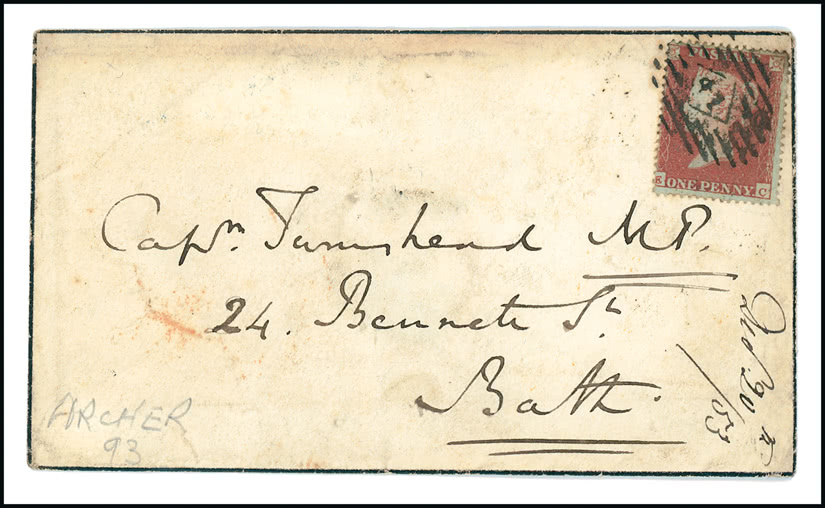 E C
ONE PENNY
Capn. Townshend M.P.
24. Bennett St.
Bath.
20th
/53
ARCHER
93